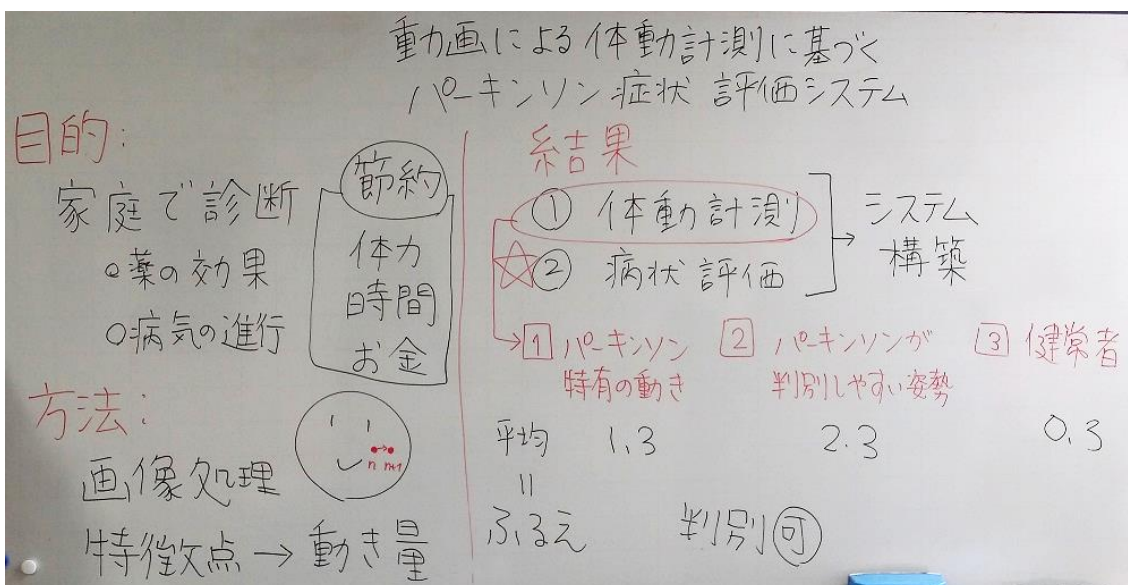 動画による体動計測に基づく
パーキンソン症状評価システム
目的:
家庭で診断
薬の効果
病気の進行
節約
体力
時間
お金
方法:
画像処理
特徴点→動き量
n n+1
結果
① 体動計測
② 病状評価
システム
構築
1 パーキンソン
特有の動き
2 パーキンソンが
判別しやすい姿勢
3 健常者
平均 1.3 2.3 0.3
=
ふるえ 判別可